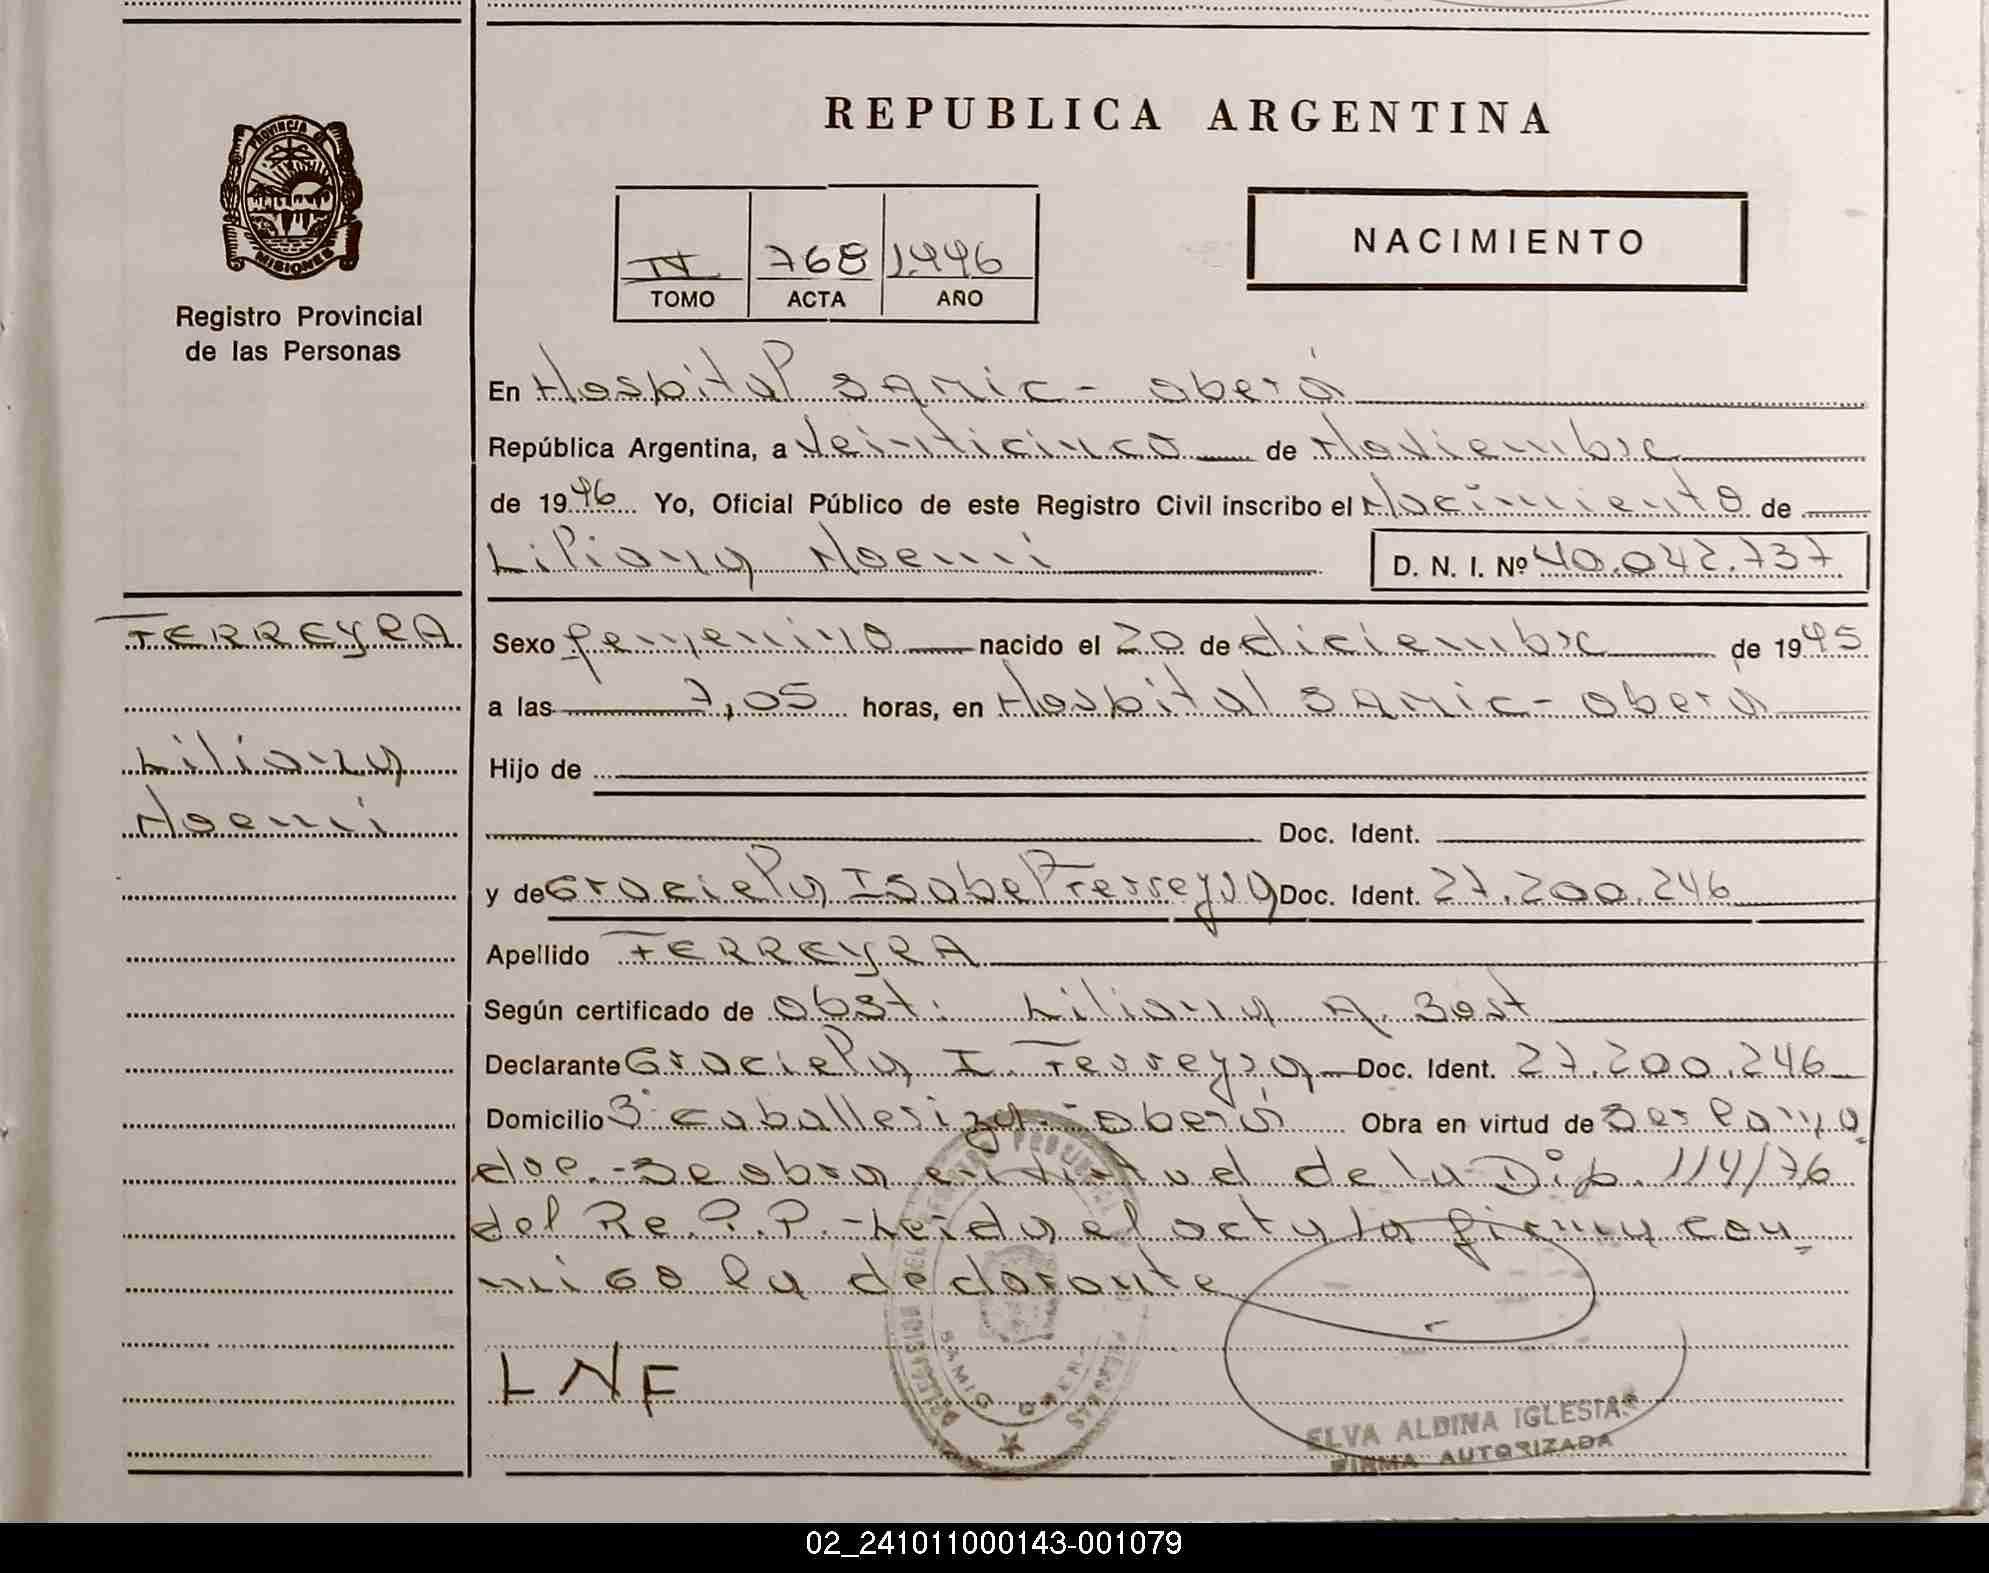 REPUBLICA ARGENTINA
PROVINCIA DE
MISIONES
Registro Provincial
de las Personas
IV 768 1.996
TOMO ACTA AÑO
NACIMIENTO
En Hospital SAMIC - Oberá
República Argentina, a Veinticinco de Noviembre
de 1996 Yo, Oficial Público de este Registro Civil inscribo el Nacimiento de
Liliana Noemi D. N. I. Nº 40.042.737
FERREYRA
Liliana
Noemi
Sexo femenino nacido el 20 de diciembre de 1995
a las 7,05 horas, en Hospital SAMIC - Oberá
Hijo de
Doc. Ident.
y de Graciela Isabel Ferreyra Doc. Ident. 27.200.246
Apellido FERREYRA
Según certificado de Obst: Liliana A. Sost
Declarante Graciela I. Ferreyra Doc. Ident. 27.200.246
Domicilio S: Caballeriza - Oberá Obra en virtud de Ser la ma
dre.- Se obra en virtud de la Disp. 114/76
del Re.P.P.- Leida el acta la firma con
migo la declarante
LNF
ELVA ALDINA IGLESIAS
FIRMA AUTORIZADA
02_241011000143-001079